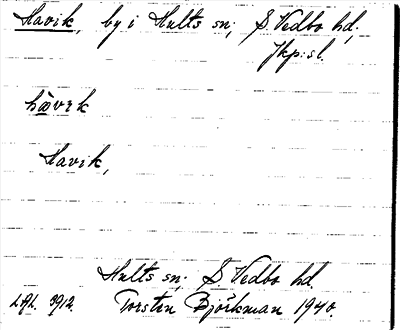 Havik, by i Hults sn, S. Vedbo hd,
Jkp:s l.
hävik
Havik,
Hults sn. S. Vedbo hd.
Lfl. 3912. Torsten Björkman 1940.